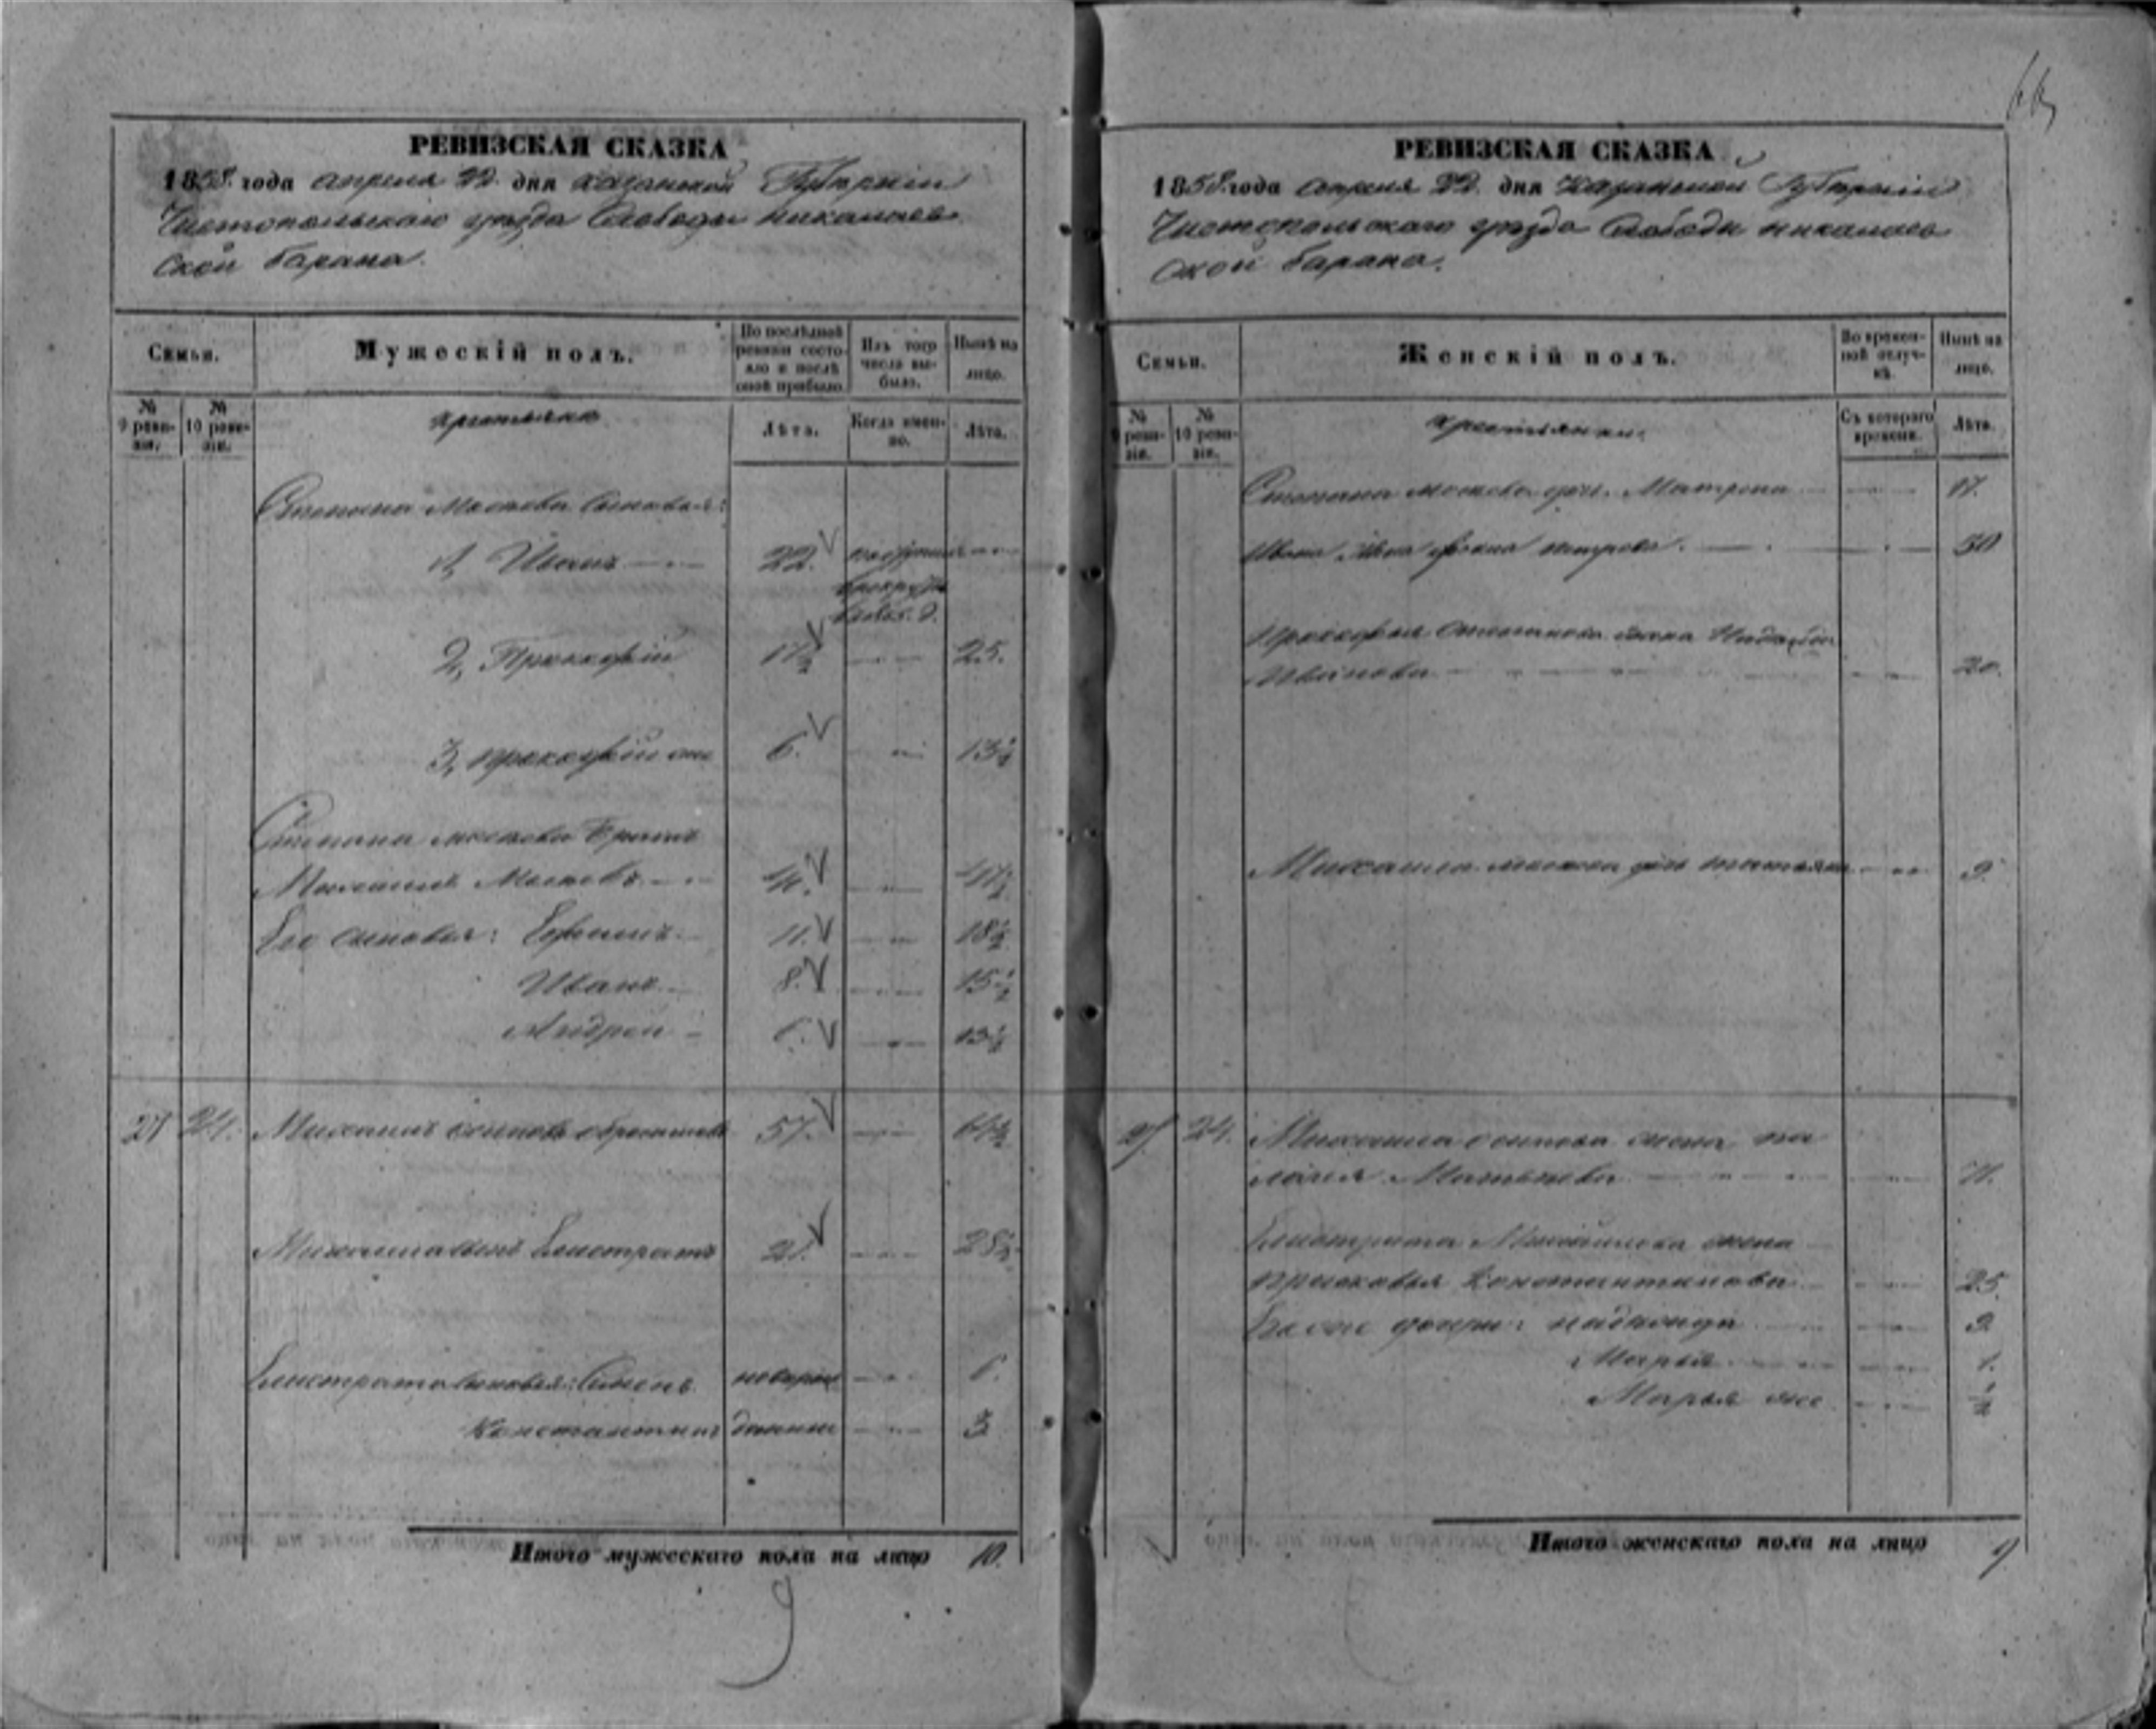 РЕВИЗСКАЯ СКАЗКА
1858 года апреля 22 дня Казанской Губернии
Чистопольскаго уезда Слободы Николаев
ской Барана.
Семьи.
Мужескій полъ.
По послѣдней ревизіи состояло и послѣ оной прибыло.
Изъ того числа выбыло.
Нынѣ на лицо.
№ 9 ревизіи.
№ 10 ревизіи.
крестьяне
Лѣта.
Когда именно.
Лѣта.
Степана сыновья:
1, Иванъ 22.
2, Прокофій 17½ 25.
3, Прокофій же 6. 13½
Степана братъ
Михаилъ
Его сыновья: Ефимъ 11. 18½
Иванъ 8. 15½
Андрей 6. 13½
27 24. Михаилъ Осиповъ 57. 64½
Михаила сынъ Елистратъ 21. 28½
Елистрата сыновья: Семенъ 6.
Константинъ 3
Итого мужескаго пола на лицо 10.
9
РЕВИЗСКАЯ СКАЗКА
1858 года апреля 22 дня Казанской Губернии
Чистопольскаго уезда Слободы Николаев
ской Барана.
Семьи.
Женскій полъ.
Во временной отлучкѣ.
Нынѣ на лицо.
№ 9 ревизіи.
№ 10 ревизіи.
крестьянки
Съ котораго времени.
Лѣта.
Степана Матрена 17.
Ивана жена Петрова. 30
Прокофья Степанова жена
Иванова 20.
Михаила дочь Татьяна 9.
27 24. Михаила Осипова жена Пе
лагея Матвеева 71.
Елистрата Михайлова жена
Прасковья Константинова 25.
дочери: 9.
Марья 1.
Марья же ½
Итого женскаго пола на лицо 9